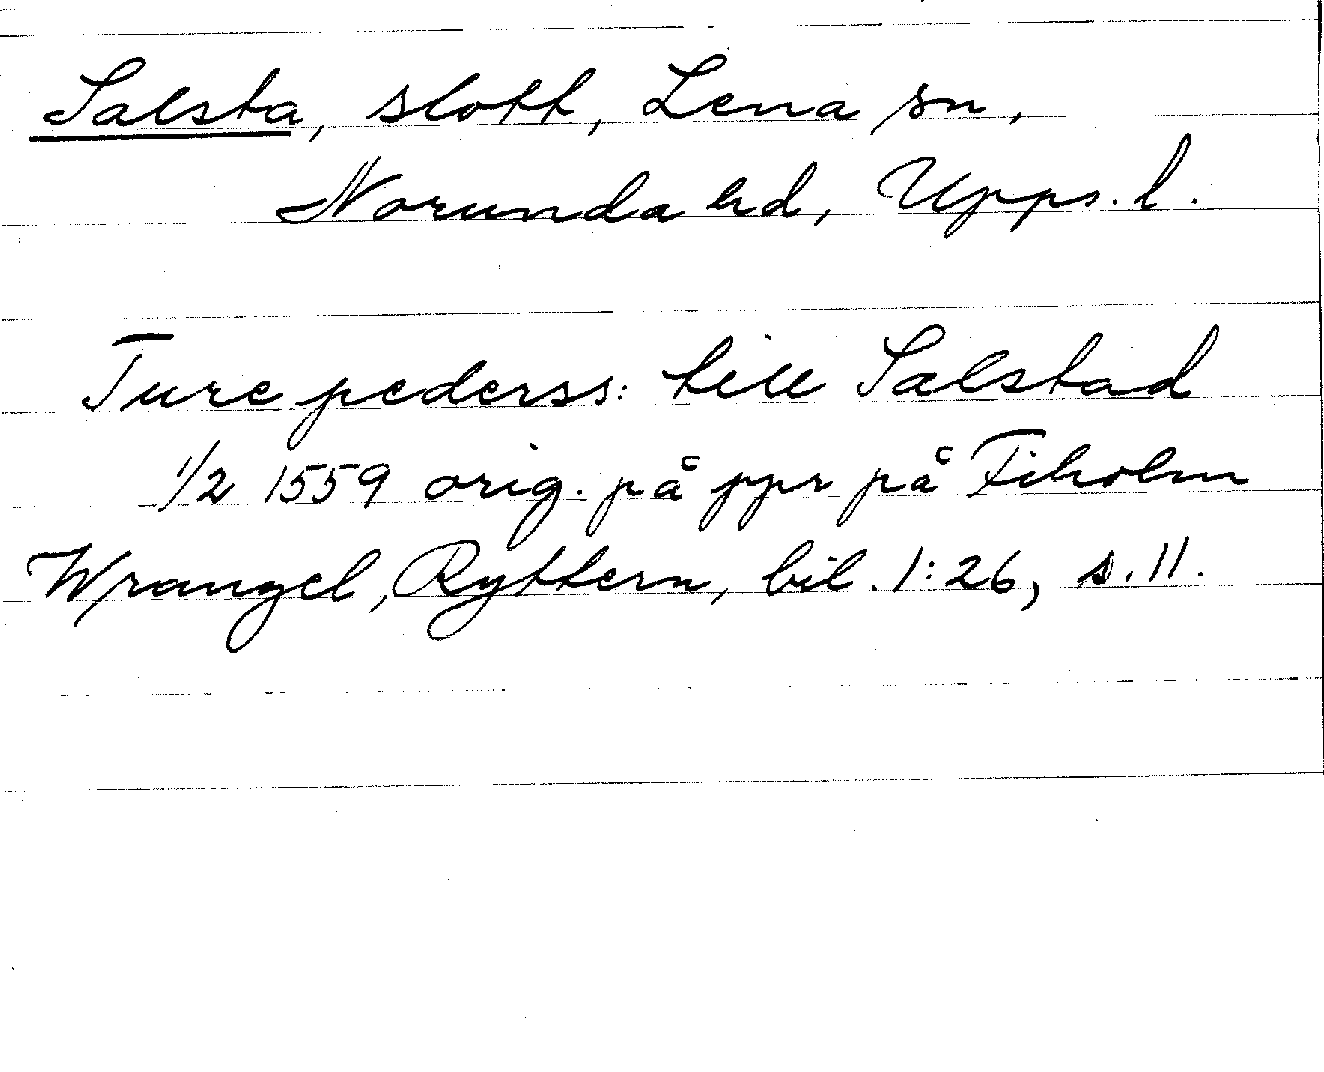 Salsta, slott, Lena sn,
Norunda hd, Upps. l.
Ture pederss: till Salstad
1/2 1559 orig. på ppr på Fiholm
Wrangel, Ryttern, bil. 1:26, s. 11.